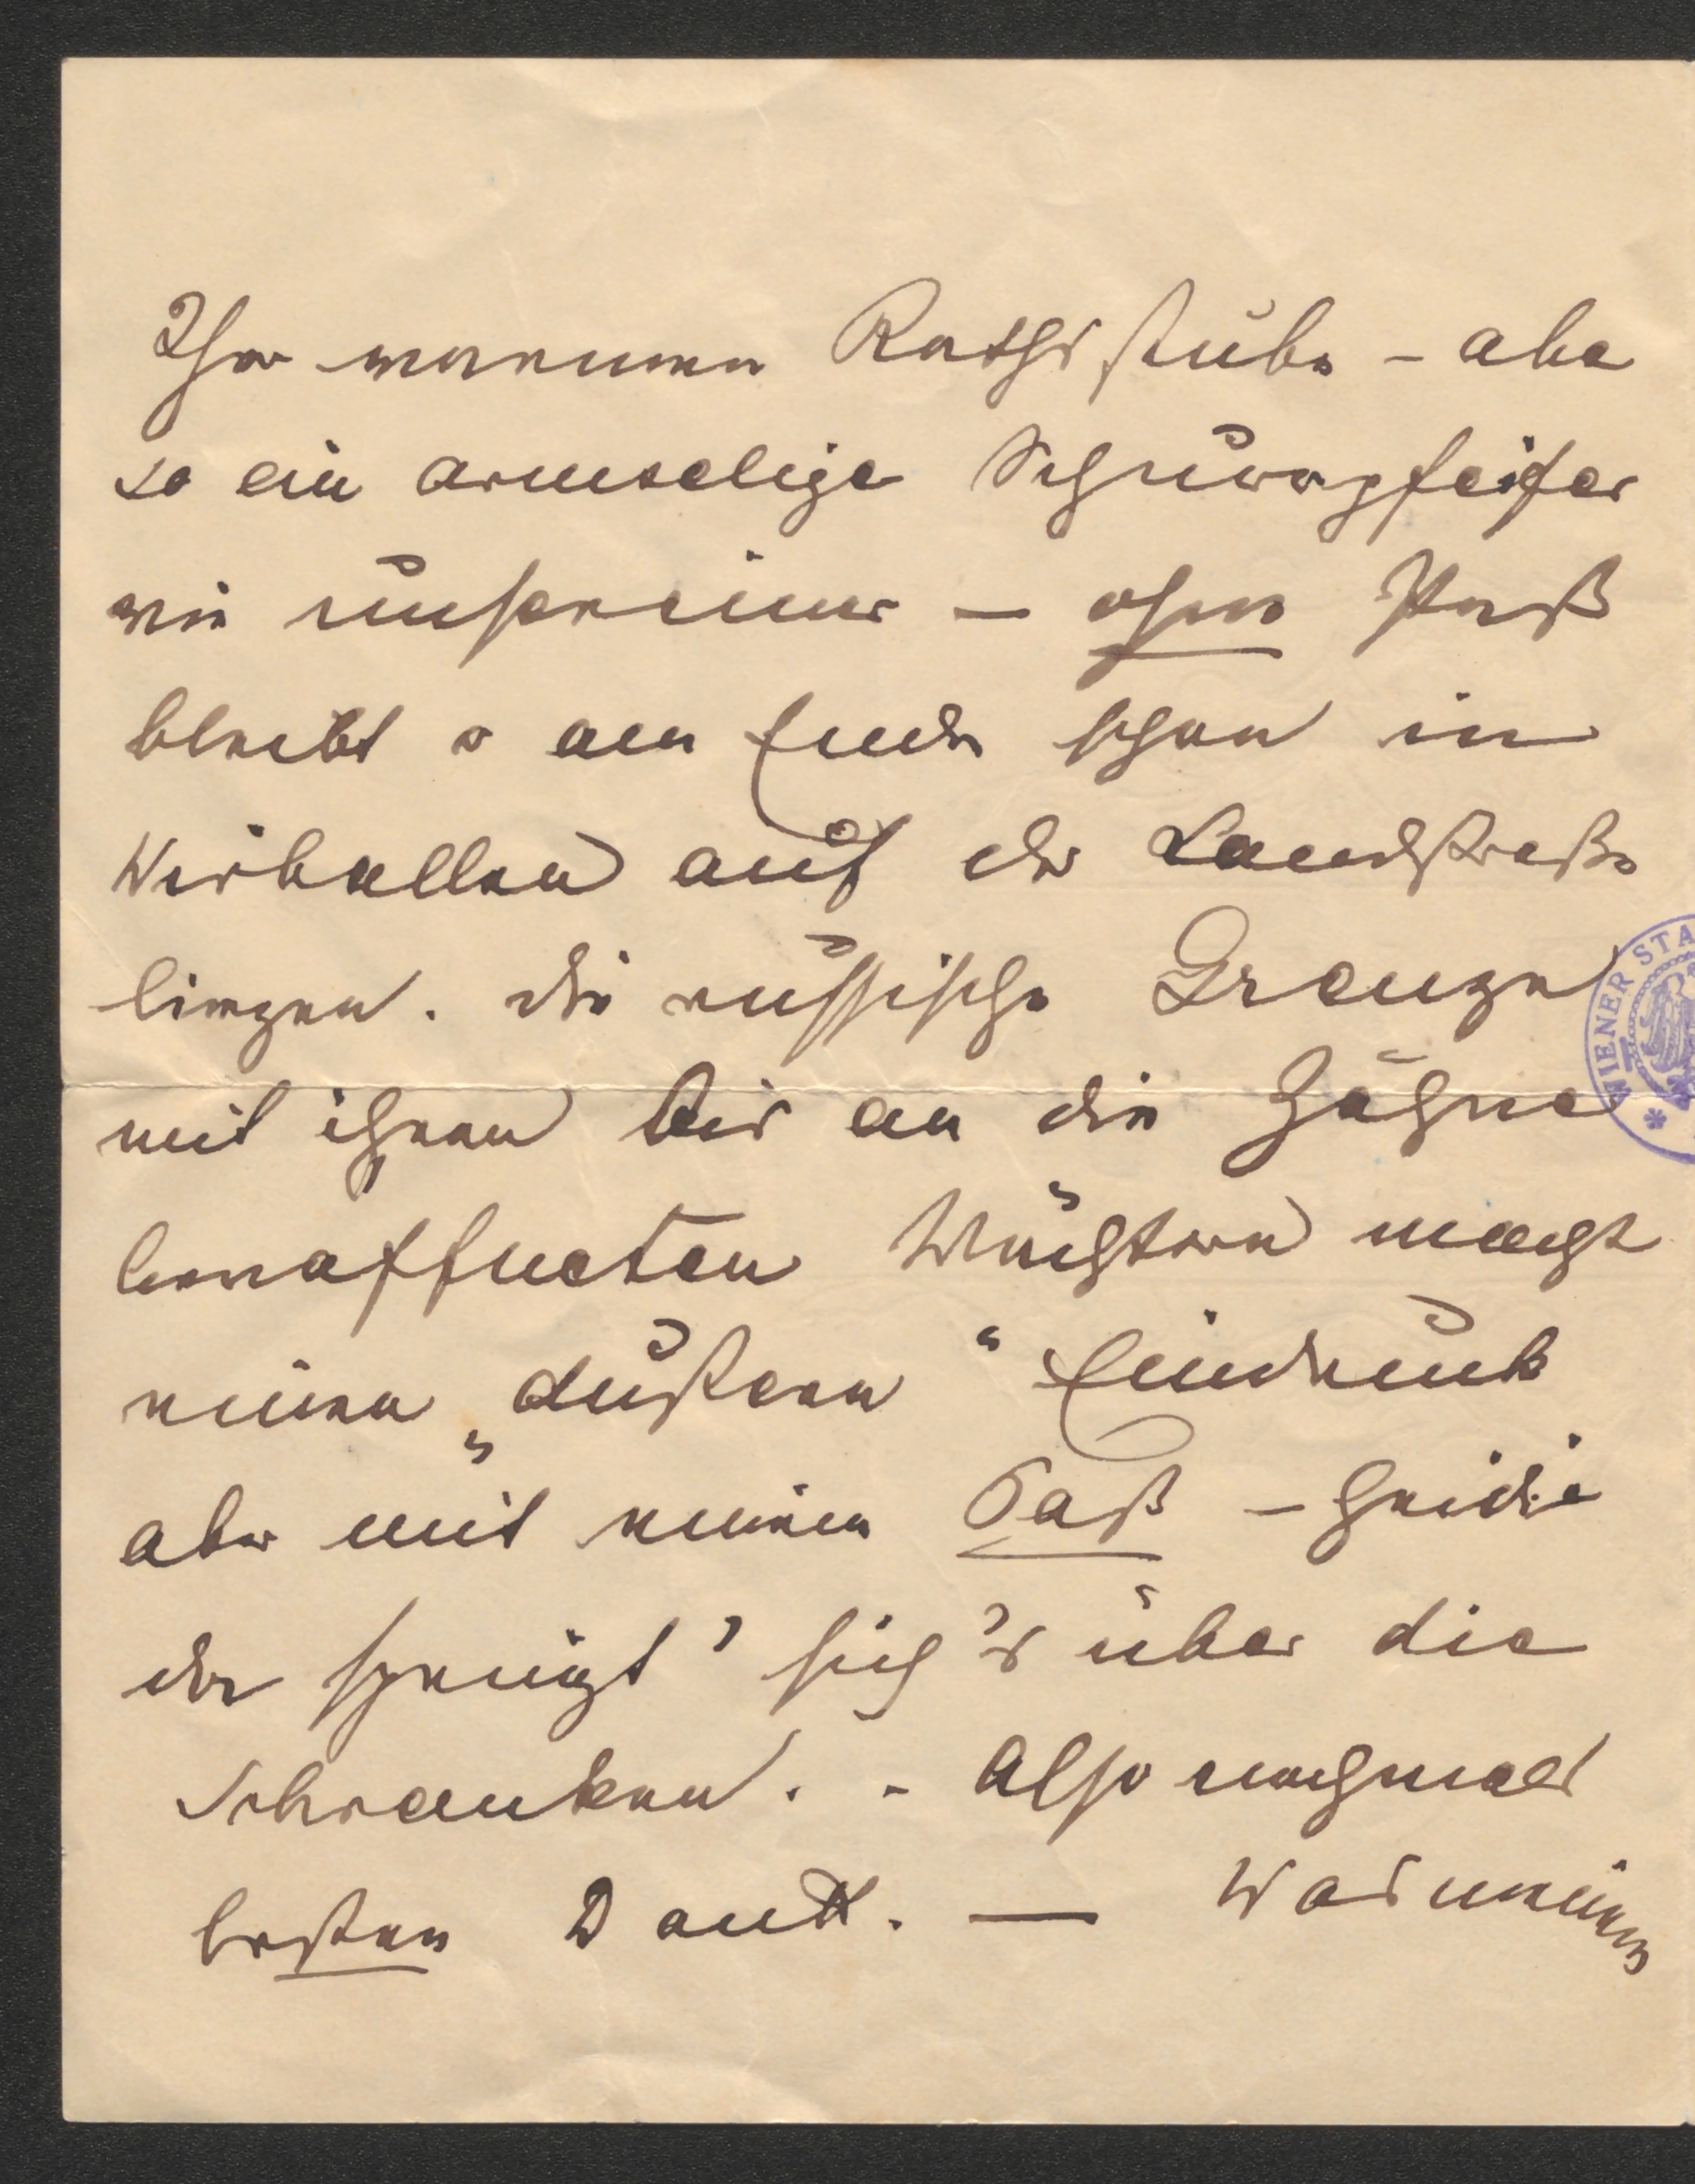 Ihrer warmen Rathsstube – aber
so ein armseliger Schnurrpfeifer
wie unsereiner – ohne Paß
bleibt er am Ende schon in
Wirballen auf der Landstraße
liegen. Die russische Grenze
mit ihren bis an die Zähne
bewaffneten Wächtern macht
einen „düstern“ Eindruck
aber mit einem Paß – heidi
der springt' sich's über die
Schranken. – Also nochmals
besten Dank. —
WIENER STA